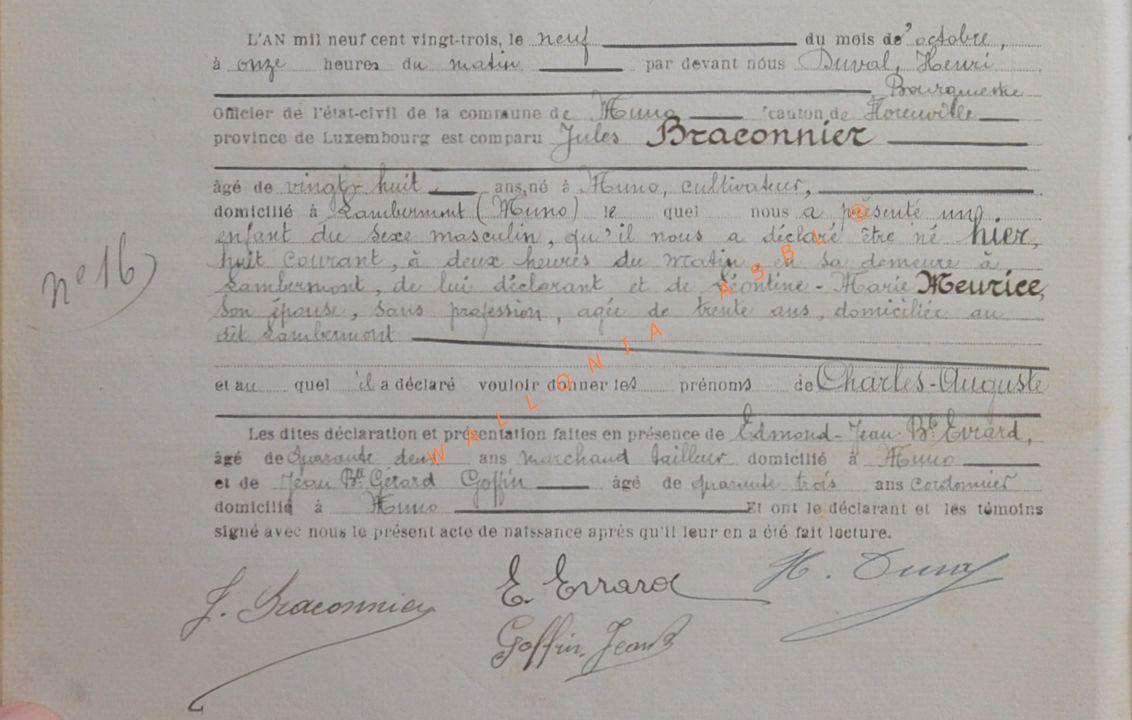 L'AN mil neuf cent vingt-trois, le neuf du mois de octobre,
à onze heures du matin par devant nous Duval, Henri
Bourgmestre
Officier de l'état-civil de la commune de Muno canton de Florenville
province de Luxembourg est comparu Jules Braconnier
âgé de vingt huit ans, né à Muno, cultivateur,
domicilié à Lambermont (Muno) le quel nous a présenté un
enfant du sexe masculin, qu'il nous a déclaré être né hier,
huit courant, à deux heures du matin, en sa demeure à
Lambermont, de lui déclarant et de Léontine-Marie Meurice,
son épouse, sans profession, agée de trente ans, domiciliée au
dit Lambermont
et au quel il a déclaré vouloir donner les prénoms de Charles-Auguste
Les dites déclaration et présentation faites en présence de Edmond-Jean-Bte Evrard,
âgé de quarante deux ans marchand tailleur domicilié à Muno
et de Jean Bte Gérard Goffin âgé de quarante trois ans cordonnier
domicilié à Muno Et ont le déclarant et les témoins
signé avec nous le présent acte de naissance après qu'il leur en a été fait lecture.
n° 16
J. Braconnier
E. Evrard
H. Duval
Goffin, Jean B
WALLONIA ASBL